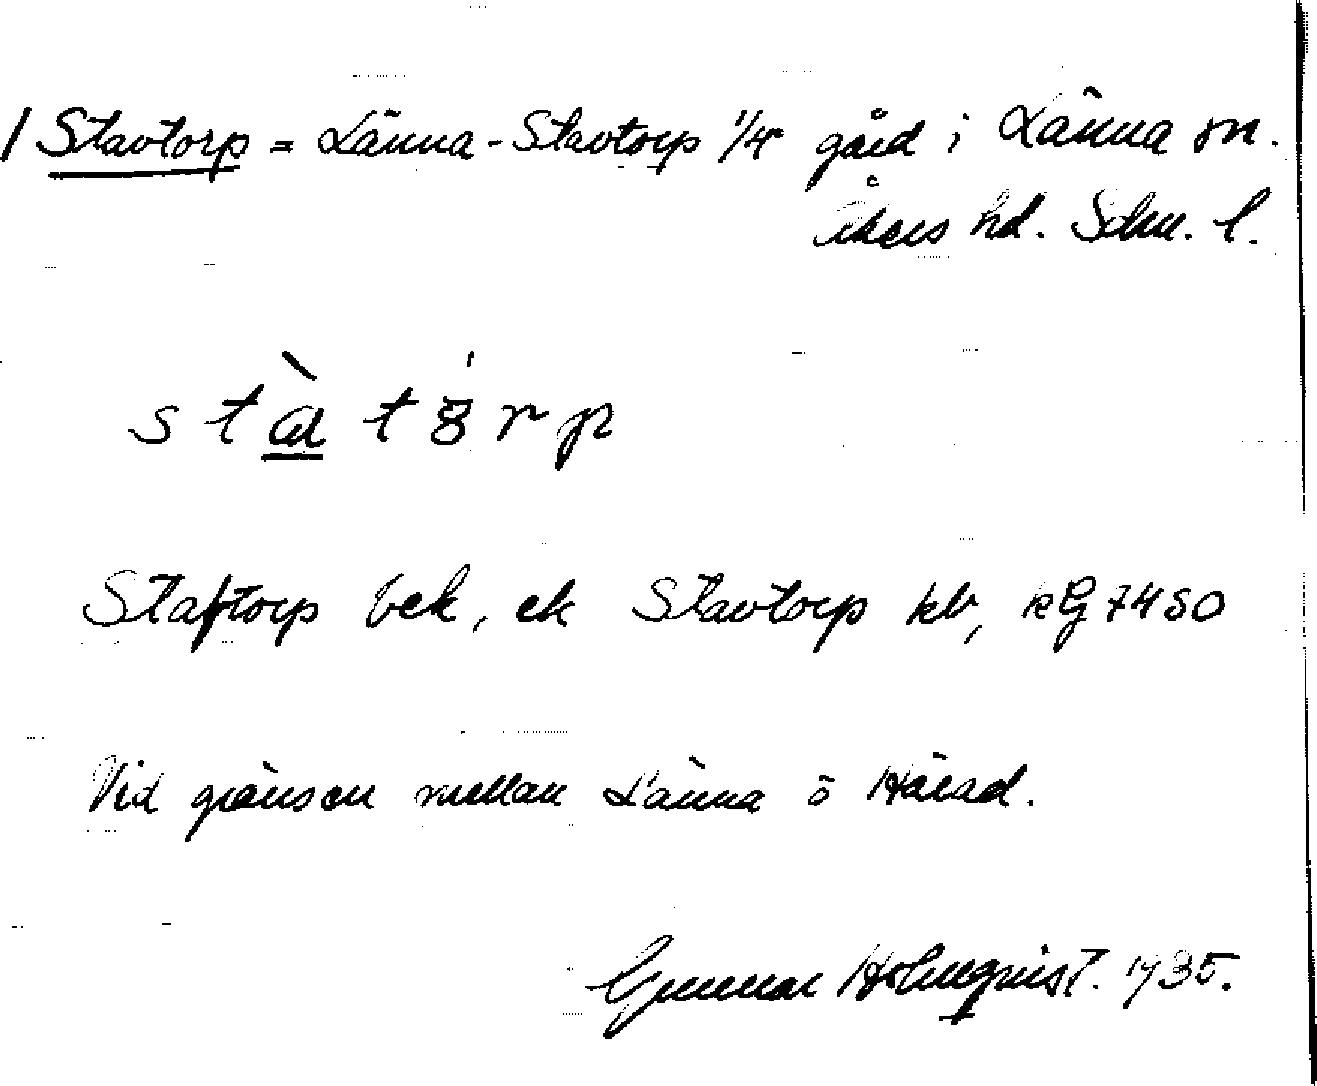 / Stavtorp = Länna-Stavtorp 1/4 gård i Länna sn.
Åkers hd. Sdm. l.
stàtȣ́rp
Staftorp bek, ek Stavtorp kb, kG 7450
Vid gränsen mellan Länna o Härad.
Gunnar Holmqvist. 1935.